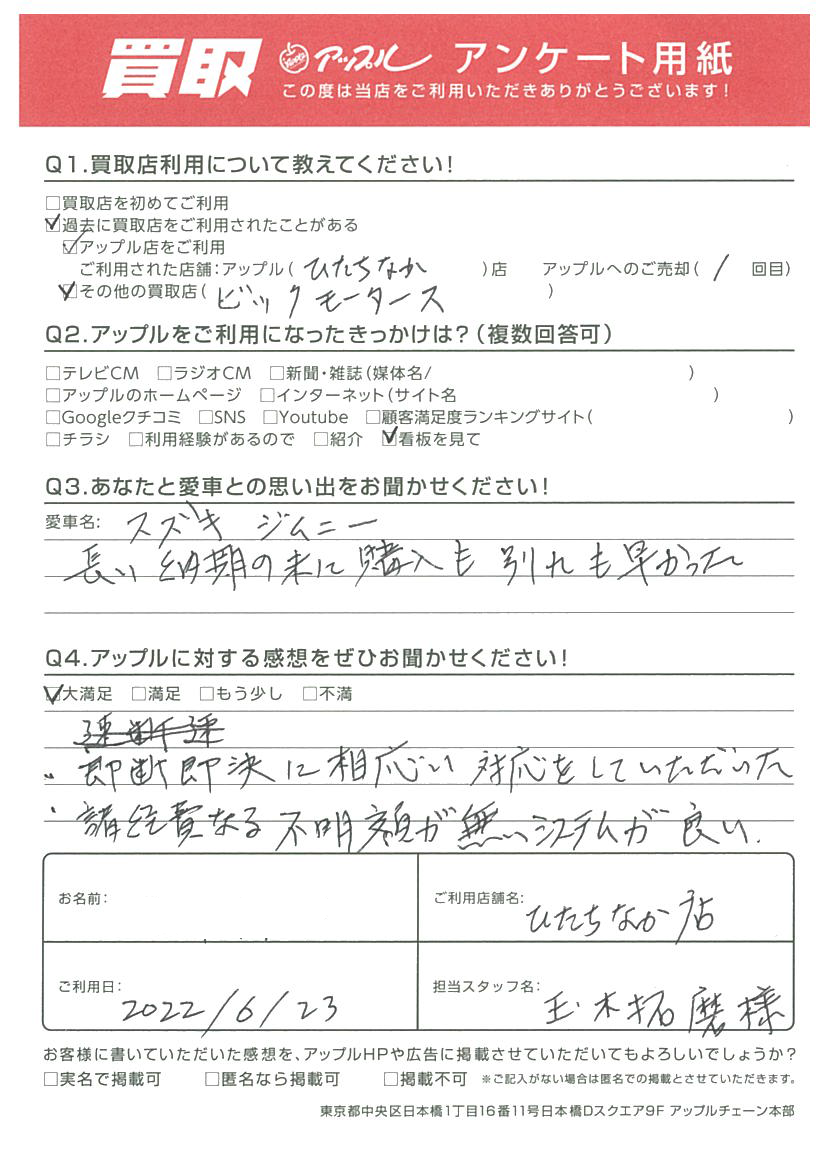 買取 アップル アンケート用紙
この度は当店をご利用いただきありがとうございます!
Q1.買取店利用について教えてください!
□買取店を初めてご利用
☑過去に買取店をご利用されたことがある
☑アップル店をご利用
ご利用された店舗:アップル( ひたちなか )店 アップルへのご売却( 1 回目)
☑その他の買取店( ビックモータース )
Q2.アップルをご利用になったきっかけは?(複数回答可)
□テレビCM □ラジオCM □新聞・雑誌(媒体名/ )
□アップルのホームページ □インターネット(サイト名 )
□Googleクチコミ □SNS □Youtube □顧客満足度ランキングサイト( )
□チラシ □利用経験があるので □紹介 ☑看板を見て
Q3.あなたと愛車との思い出をお聞かせください!
愛車名: スズキ ジムニー
長い納期の末に購入も別れも早かった
Q4.アップルに対する感想をぜひお聞かせください!
☑大満足 □満足 □もう少し □不満
・即断即決に相応い対応をしていただいた
・諸経費なる不明額が無いシステムが良い.
お名前:
ご利用店舗名: ひたちなか店
ご利用日: 2022/6/23
担当スタッフ名: 玉木拓磨様
お客様に書いていただいた感想を、アップルHPや広告に掲載させていただいてもよろしいでしょうか?
□実名で掲載可 □匿名なら掲載可 □掲載不可 ※ご記入がない場合は匿名での掲載とさせていただきます。
東京都中央区日本橋1丁目16番11号日本橋Dスクエア9F アップルチェーン本部